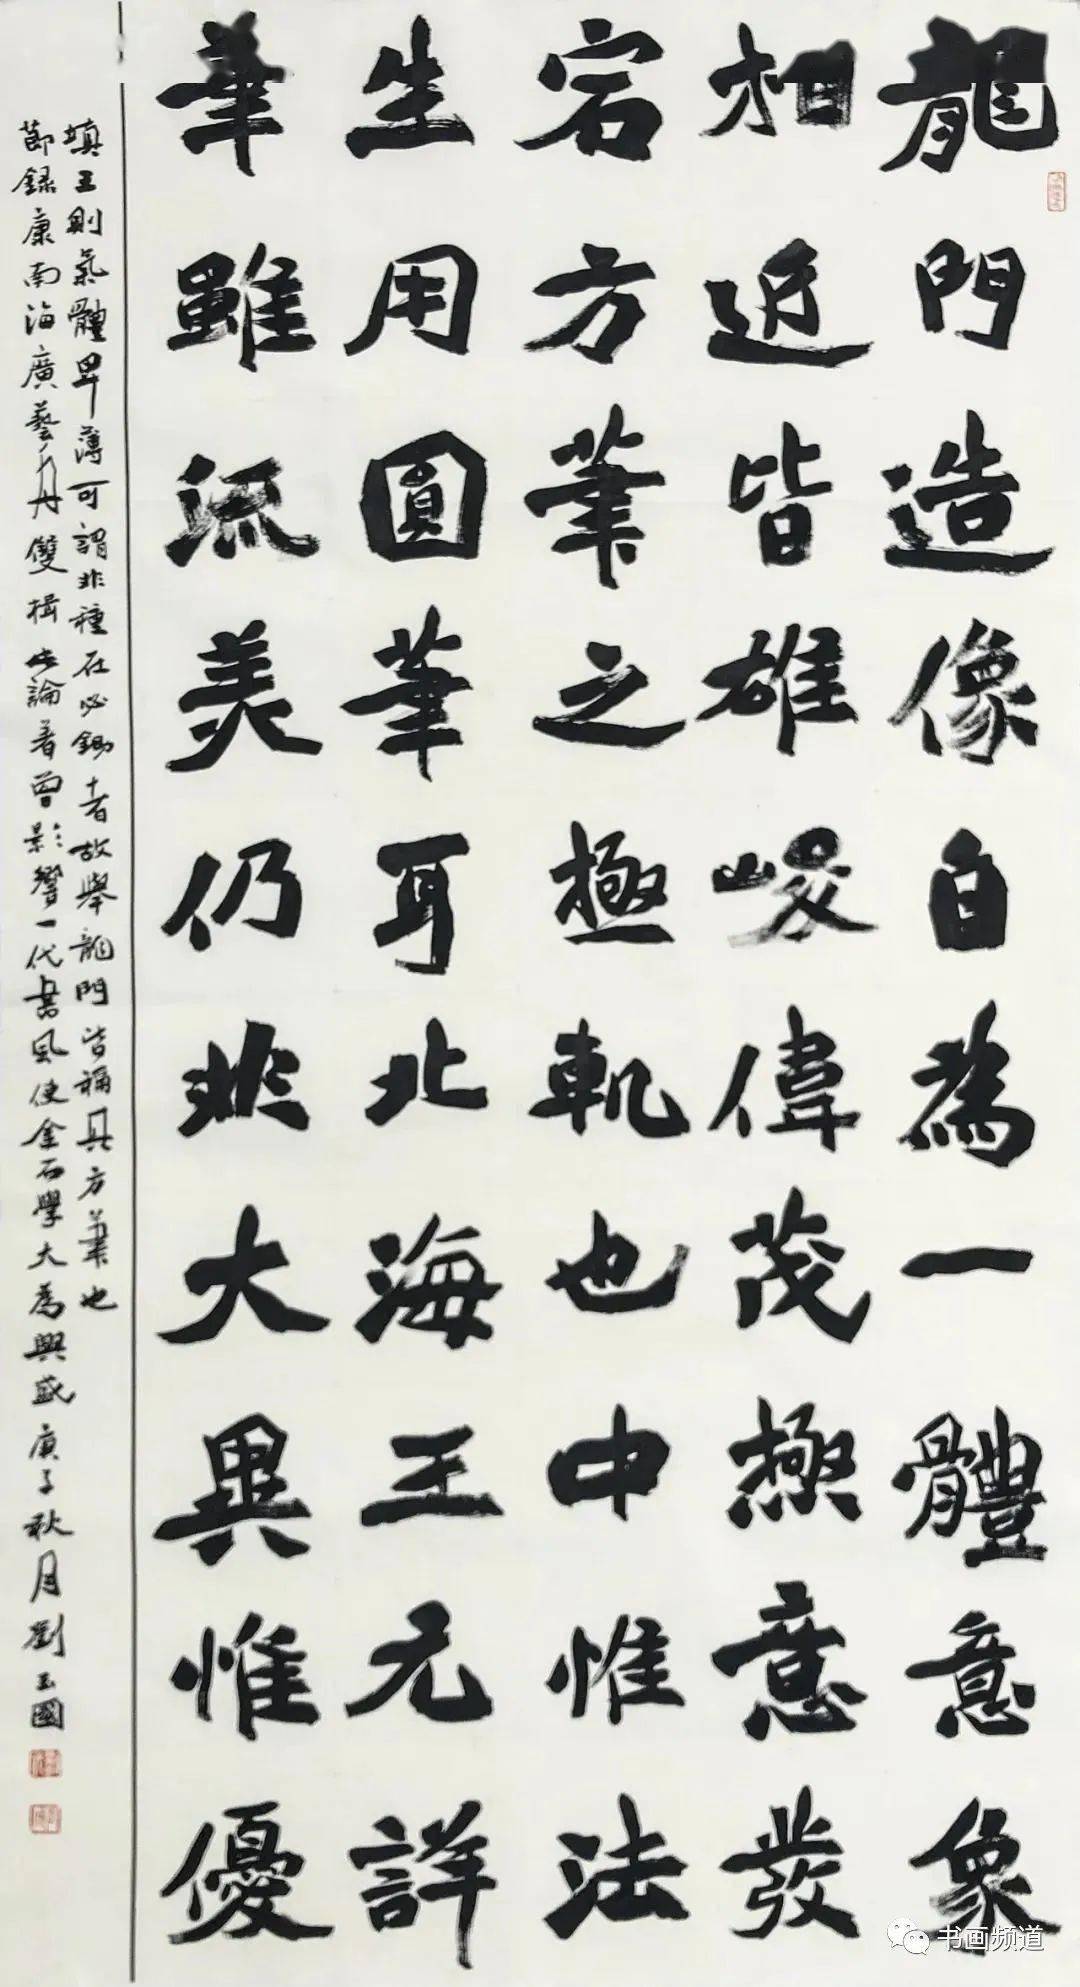 龍門造像自為一體意象
相近皆雄峻偉茂極意發
宕方筆之極軌也中惟法
生用圓筆耳北海王元詳
筆雖流美仍非大異惟優
填王則氣體卑薄可謂非種在必鋤者故舉龍門皆稱其方筆也
節録康南海廣藝舟雙楫此論着曾影響一代書風使金石學大為興盛庚子秋月劉玉國
书画频道